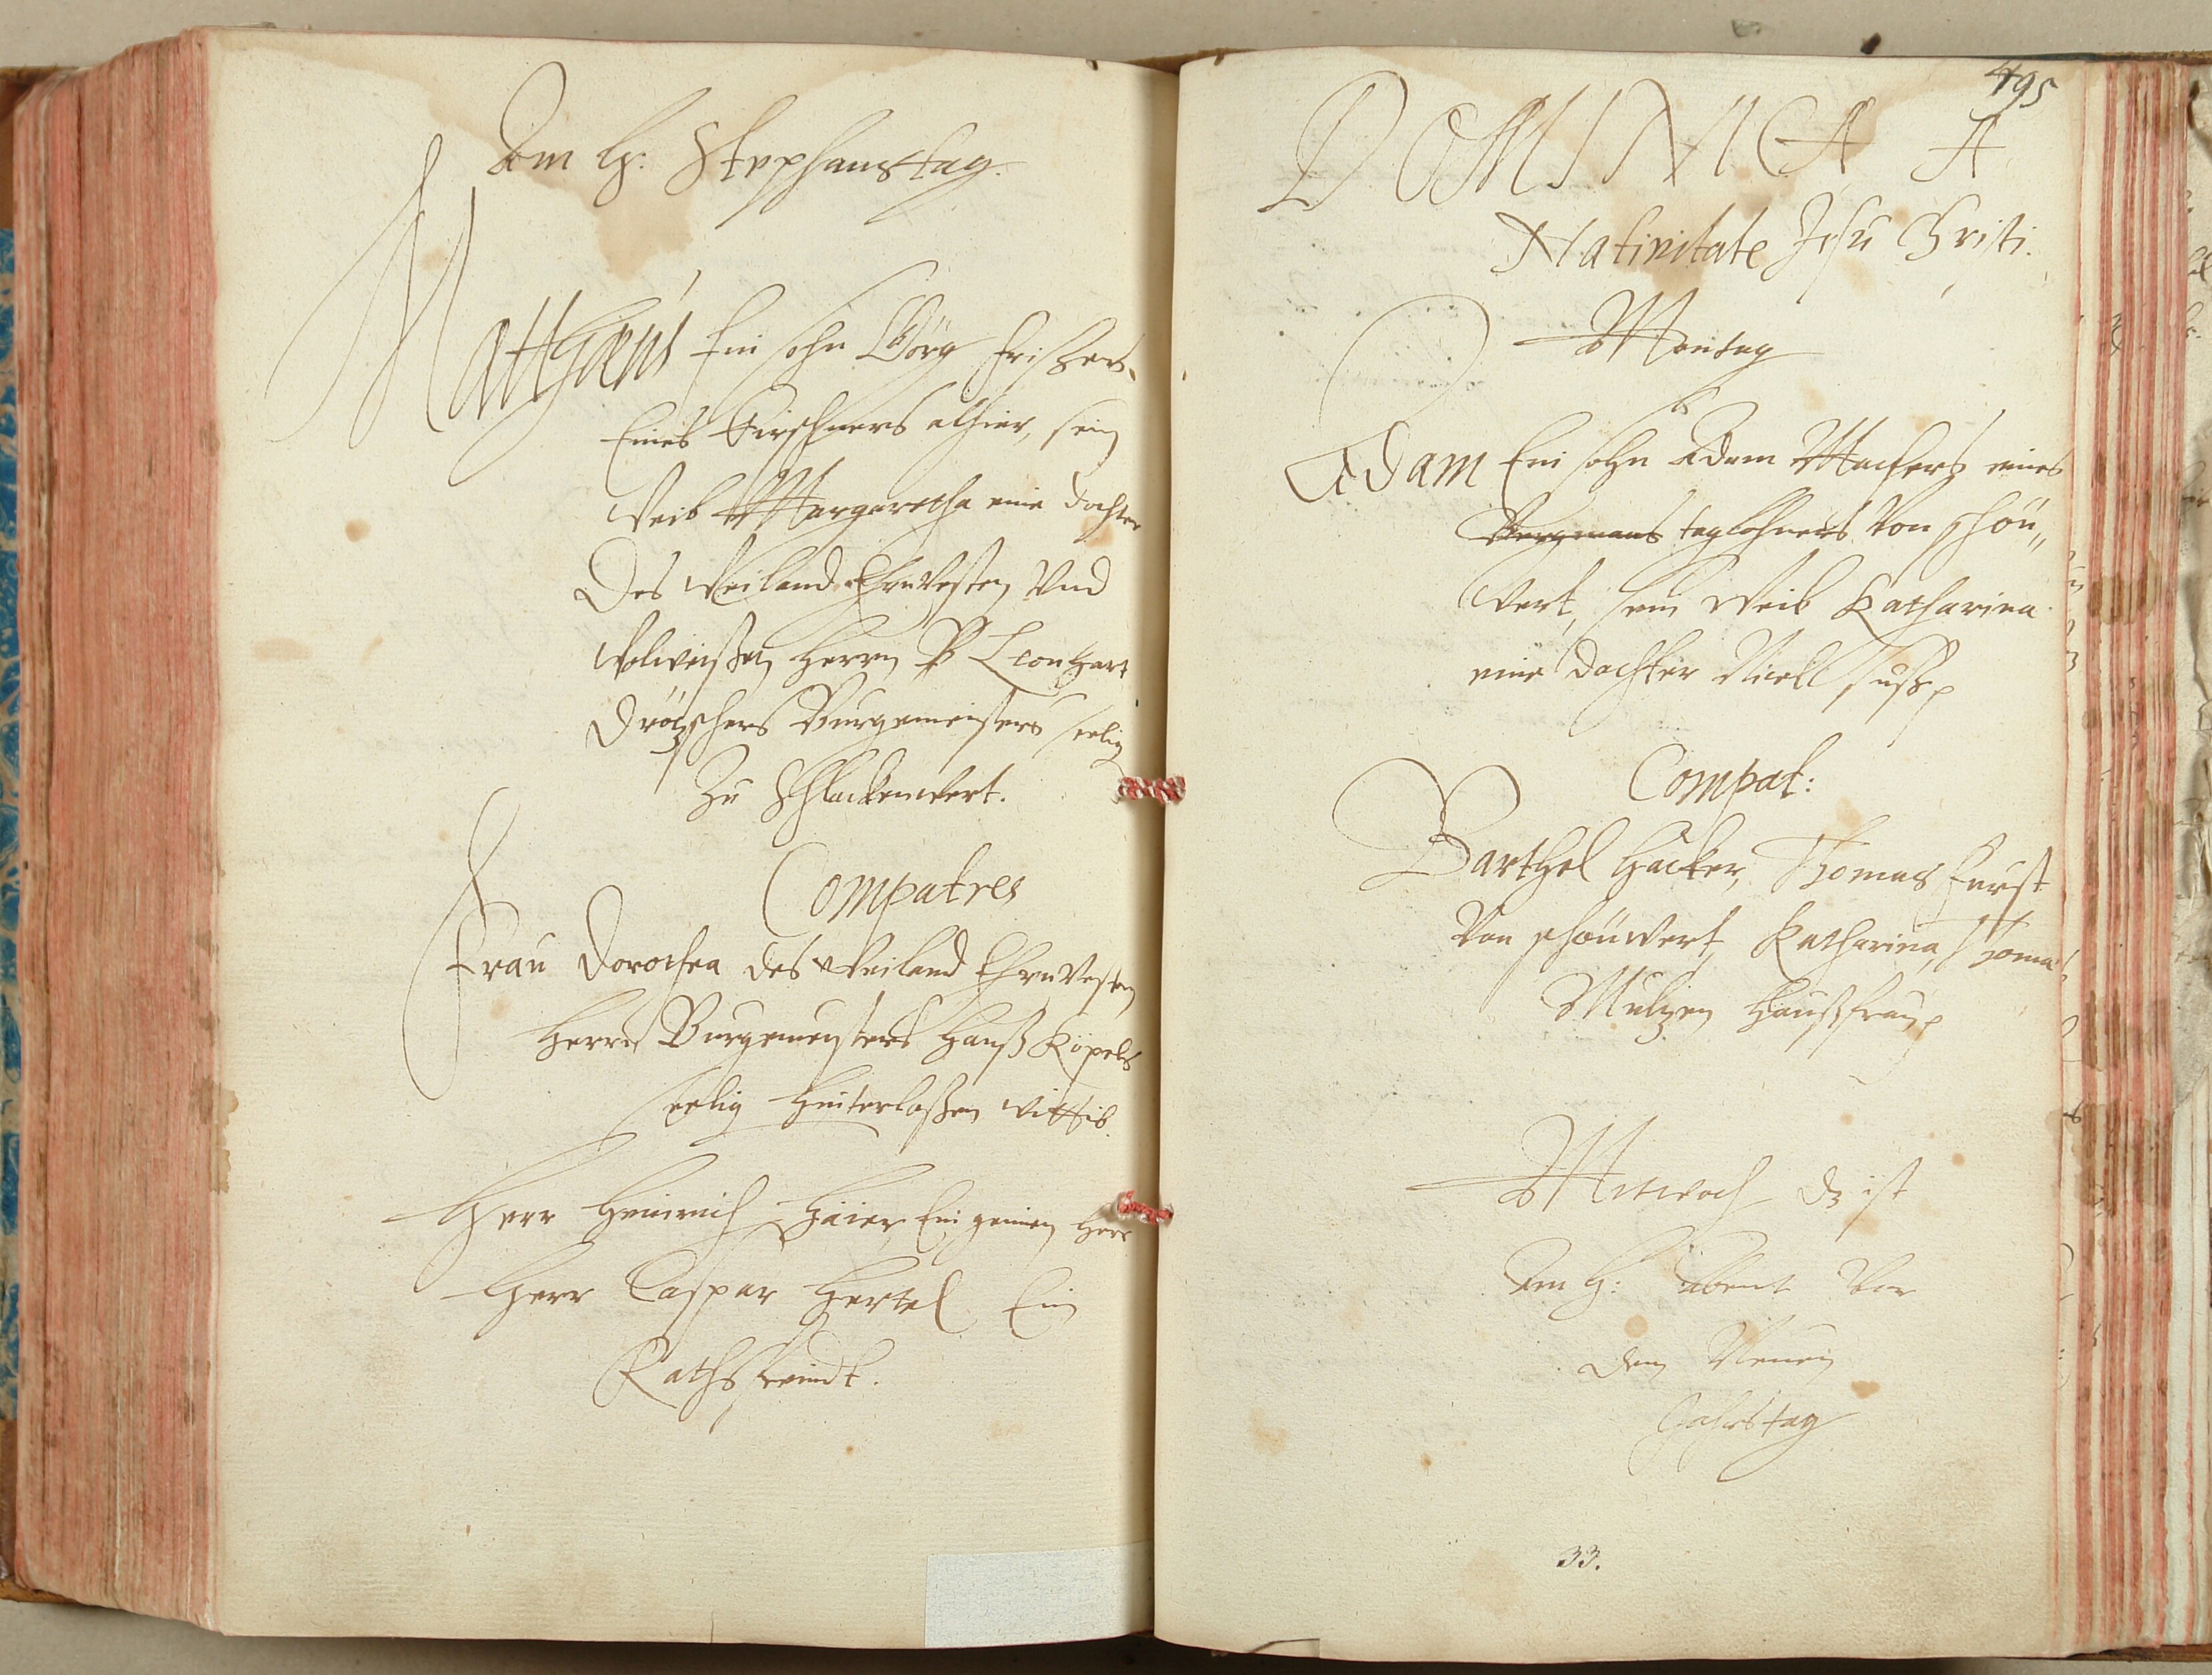 Am H: Stephanstag.
Matthaeus Ein sohn Görg Frischers
Eines Kirschners alhier, sein
Weib Margaretha eine dochter
Des Weiland Ehrnvesten Vnd
Wolweisen Herrn Leonhart
Drözschers Burgemeisters seelig
Zu Schlackenwert.
Compatres
Frau Dorothea des Weiland Ehrnvesten
Herrn Burgemeisters Hanß Köpels
seelig Hinterlaßen Wittib.
Herr Heinrich Ein
Herr Caspar Hertel Ein
Rathsfreindt.
495
DOMINICA A
Nativitate Jesu Christi.
Montag
Adam Ein sohn Adam Machers eines
Bergmans taglohners Von schön„
wert, sein Weib Katharina
eine dochter Nickl
Compat:
Barthel Hacker, Thomas Furst
Von schönwert, Katharina, Thoma
Mulzen Haußfrau
Mitwoch dz ist
Am H: Abent Vor
dem Neuen
Jahrstag
33.